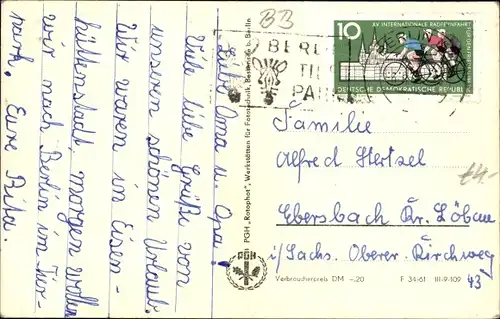 BB
Liebe Oma u. Opa!
Viele liebe Grüße von
unseren schönen Urlaub.
Wir waren in Eisen-
hüttenstadt, morgen wollen
wir nach Berlin im Tier-
park. Eure Rita.
PGH „Rotophot“, Werkstätten für Fototechnik, Bestensee b. Berlin
PGH
BERLIN
10
XV. INTERNATIONALE RADFERNFAHRT
FÜR DEN FRIEDEN
DEUTSCHE DEMOKRATISCHE REPUBLIK
Familie
Alfred Hertsel
€4.-
Ebersbach Kr. Löbau
i/Sachs. Oberer-Kirchweg
43
Verbraucherpreis DM –.20
F 34-61 III-9-109